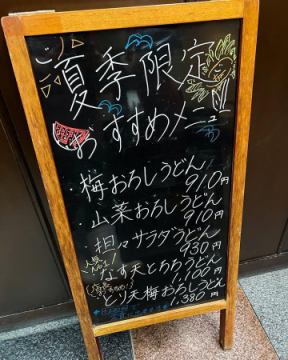 夏季限定
おすすめメニュー!!
・梅おろしうどん
910円
・山菜おろしうどん
910円
・担々サラダうどん
930円
人気No.1!
なす天とろろうどん
1,100円
とり天梅おろしうどん
1,380円